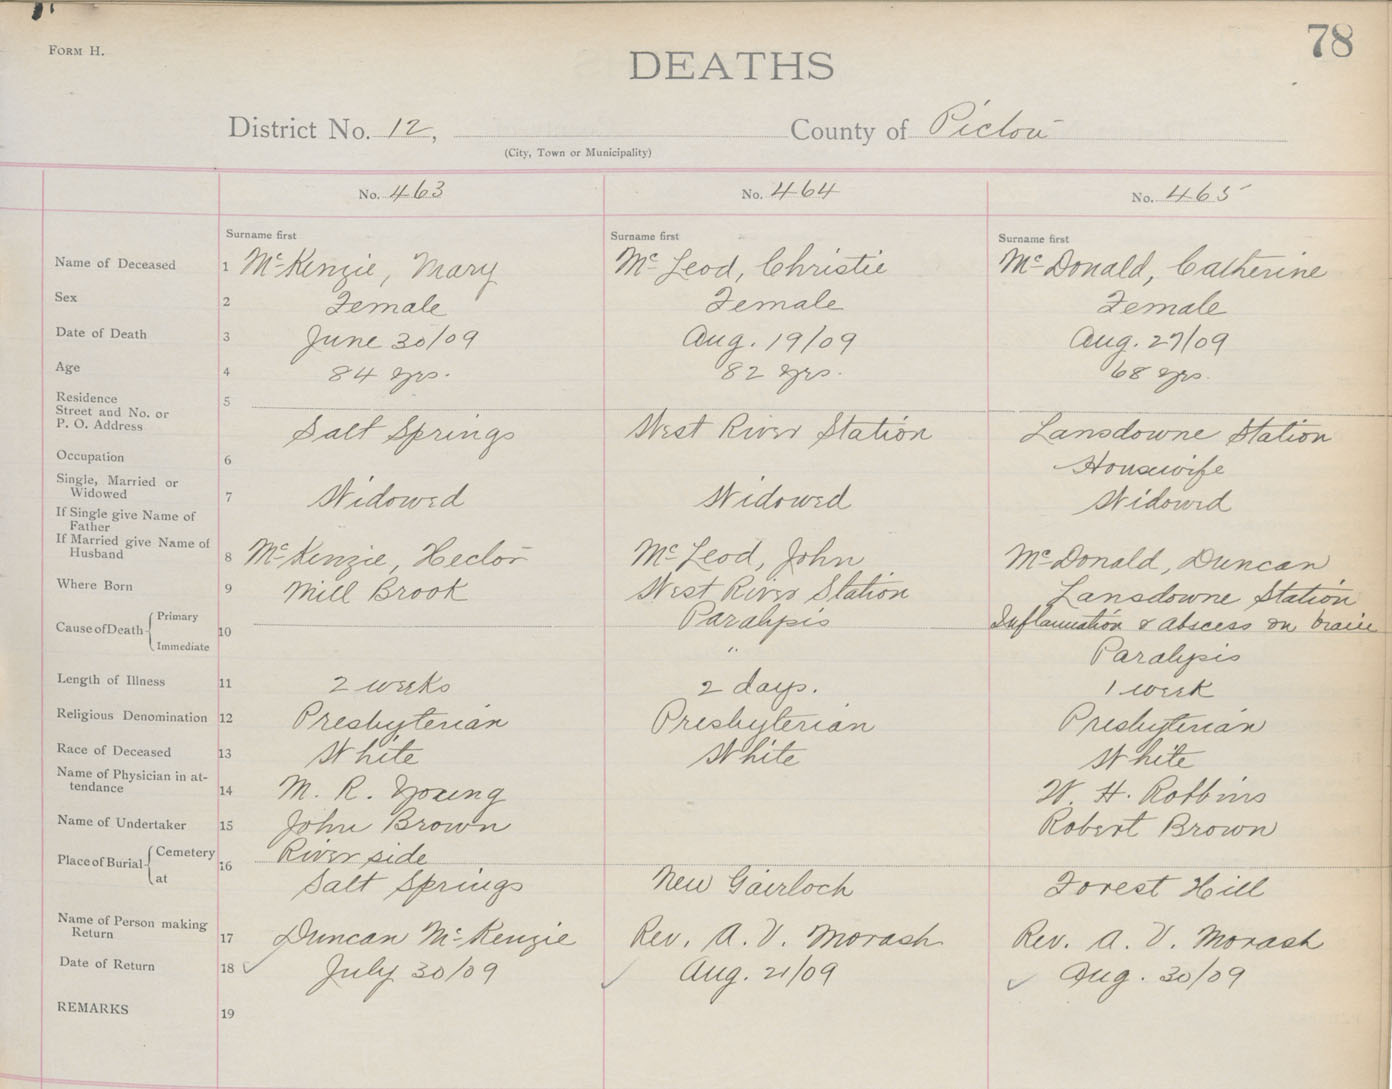 78
FORM H.
DEATHS
District No. 12, County of Pictou
(City, Town or Municipality)
No. 463 No. 464 No. 465
Surname first Surname first Surname first
Name of Deceased 1 McKenzie, Mary McLeod, Christie McDonald, Catherine
Sex 2 Female Female Female
Date of Death 3 June 30/09 Aug. 19/09 Aug. 27/09
Age 4 84 yrs. 82 yrs. 68 yrs.
Residence 5
Street and No. or
P. O. Address Salt Springs West River Station Lansdowne Station
Occupation 6 Housewife
Single, Married or
Widowed 7 Widowed Widowed Widowed
If Single give Name of
Father
If Married give Name of
Husband 8 McKenzie, Hector McLeod, John McDonald, Duncan
Where Born 9 Mill Brook West River Station Lansdowne Station
Cause of Death Primary 10 Paralysis Inflammation & abscess on brain
Immediate " Paralysis
Length of Illness 11 2 weeks 2 days. 1 week
Religious Denomination 12 Presbyterian Presbyterian Presbyterian
Race of Deceased 13 White White White
Name of Physician in at-
tendance 14 M. R. Young W. H. Robbins
Name of Undertaker 15 John Brown Robert Brown
Place of Burial Cemetery 16 River side
at Salt Springs New Gairloch Forest Hill
Name of Person making
Return 17 Duncan McKenzie Rev. A. V. Morash Rev. A. V. Morash
Date of Return 18 July 30/09 Aug. 21/09 Aug. 30/09
REMARKS 19